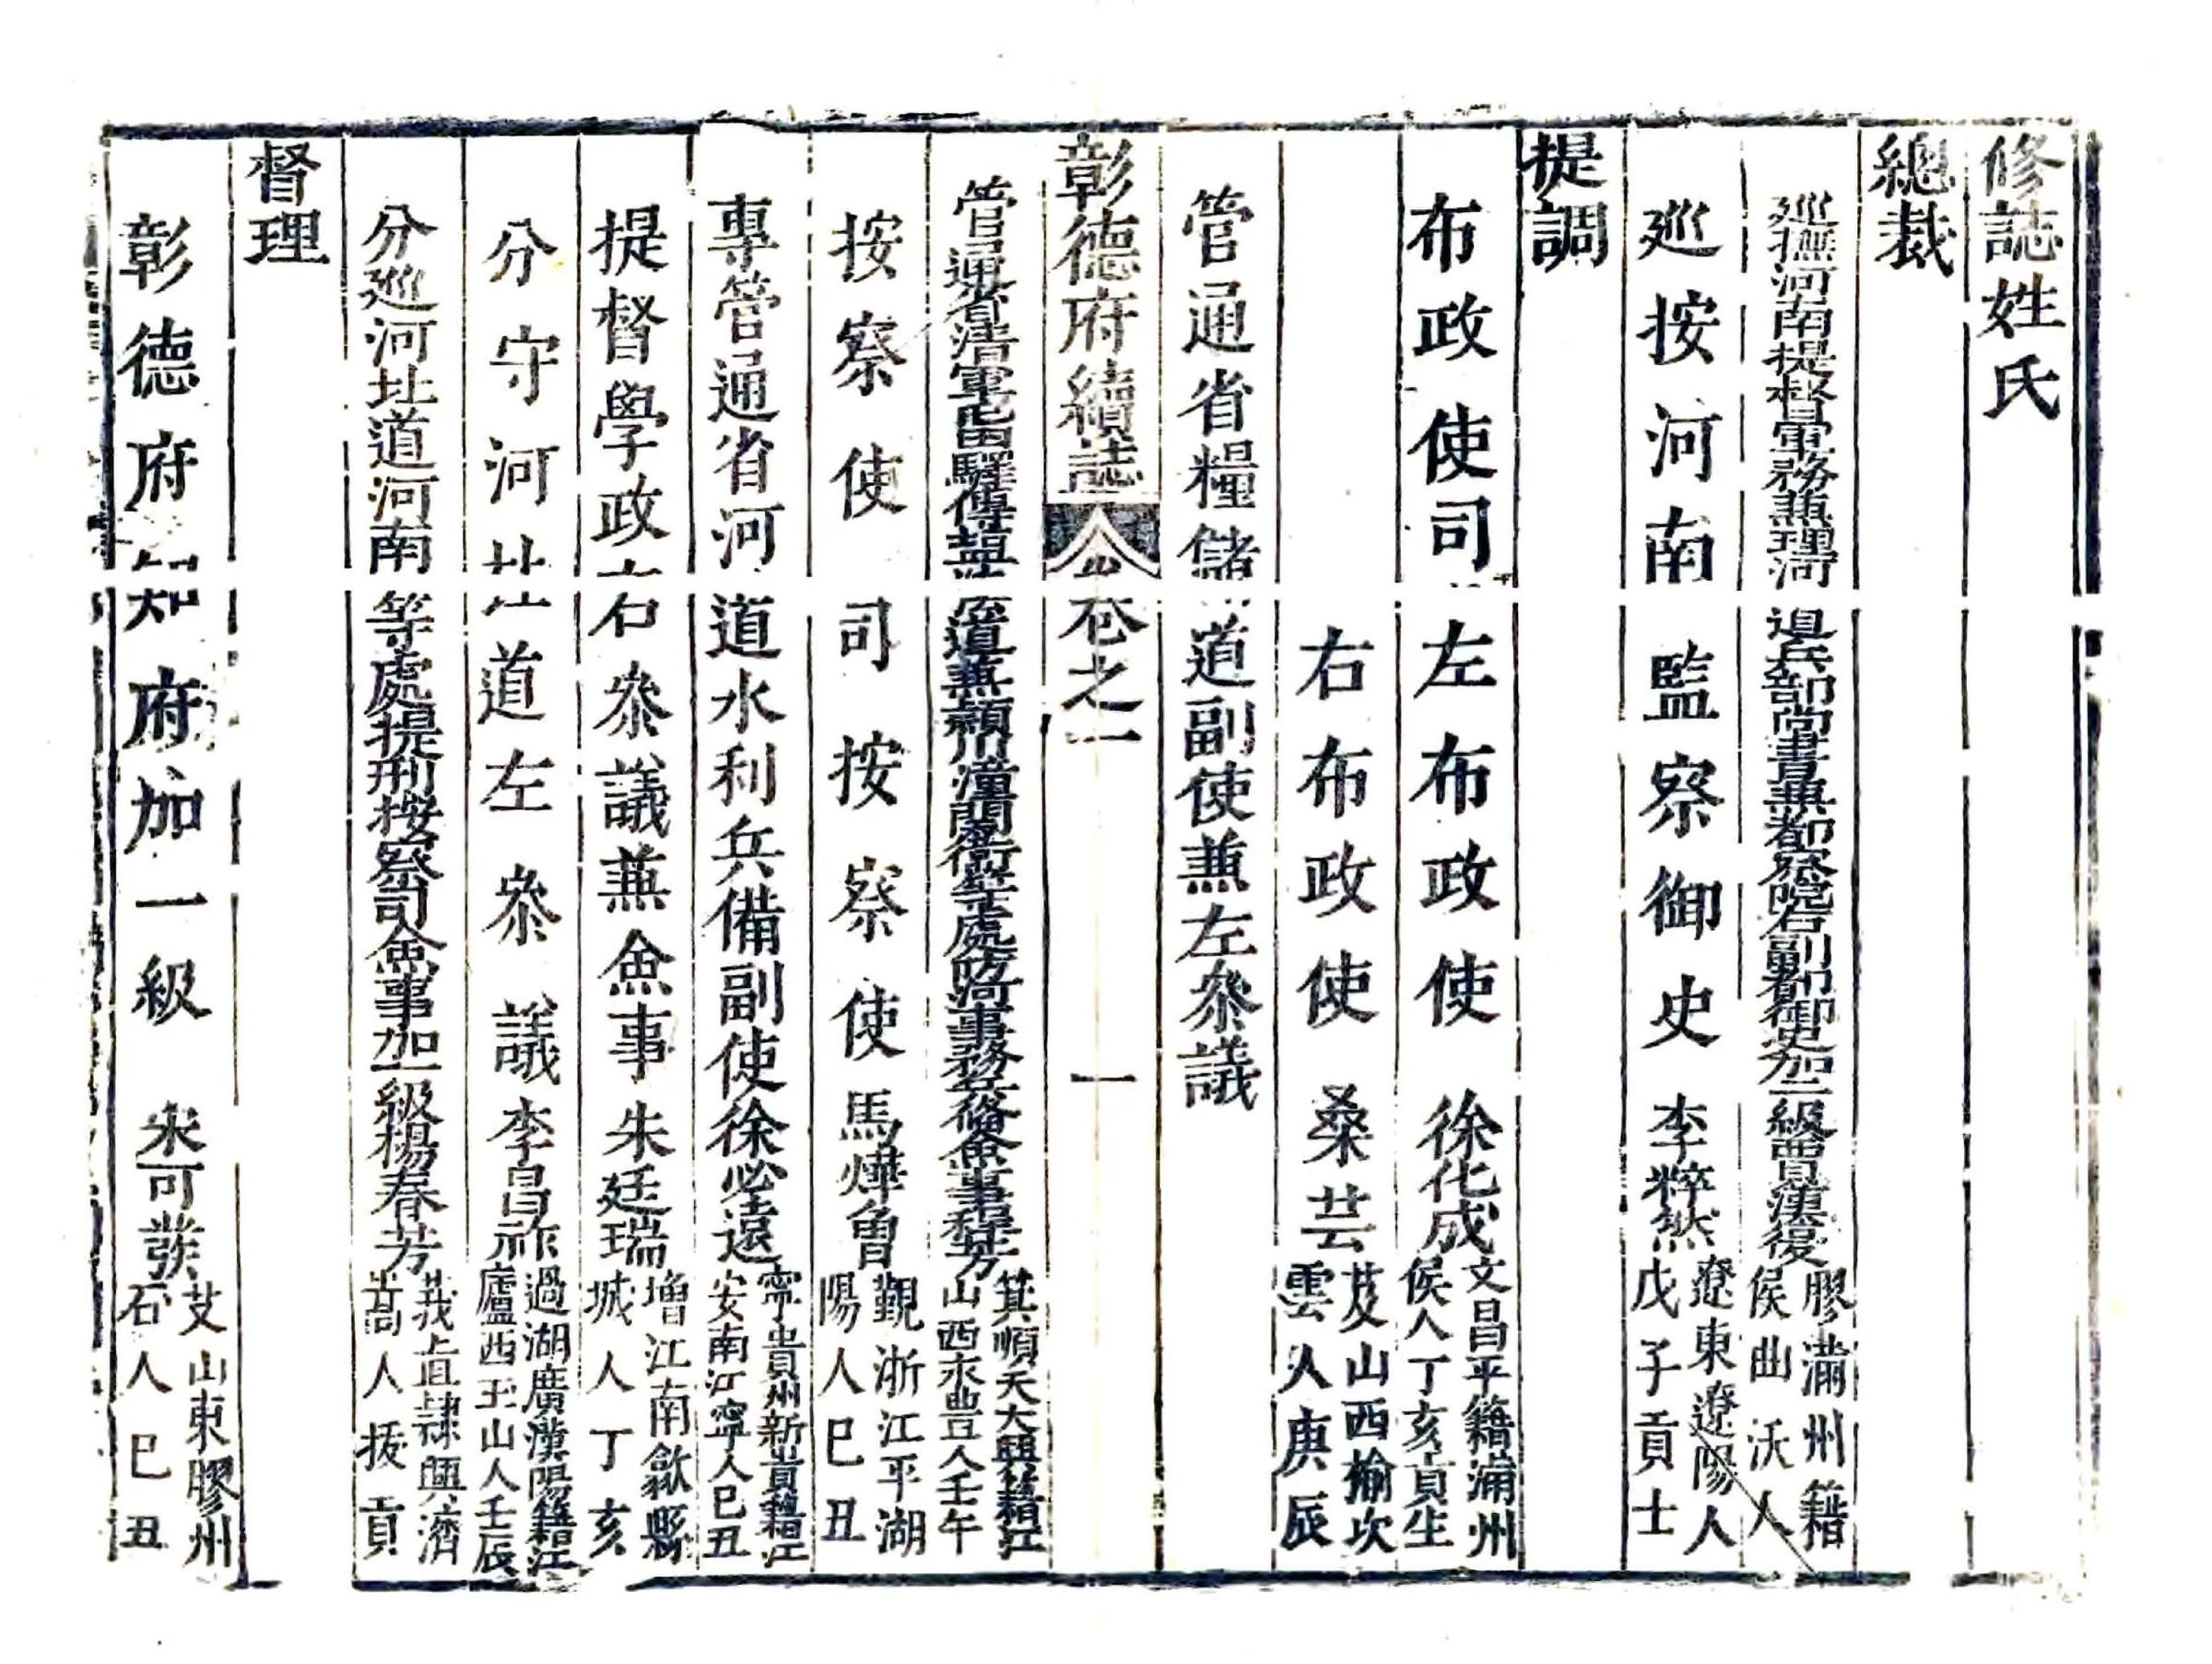 修誌姓氏
總裁
巡撫河南提督軍務兼理河道兵部尚書兼都察院右副都御史加二級賈漢復 膠滿州籍侯曲沃人
巡按河南監察御史 李粹然 遼東遼陽人戊子貢士
提調
布政使司左布政使 徐化成 文昌平籍滿州侯人丁亥貢生
右布政使 桑芸 芨山西榆次雲人庚辰
管通省糧儲道副使兼左叅議
彰德府續誌 卷之一 一
管通省清軍屯田驛傳鹽法道兼潁川潼關衛等處防河事務兵備僉事 箕順天大興籍江山西永豊人壬午
按察使司按察使 馬燁曾 覲浙江平湖陽人巳丑
專管通省河道水利兵備副使徐必遠 寧貴州新貴籍江安南江寧人巳丑
提督學政右叅議兼僉事朱廷瑞 增江南歙縣城人丁亥
分守河北道左叅議李昌祚 過湖廣漢陽籍江廬西玉山人壬辰
分廵河北道河南等處提刑按察司僉事加一級楊春芳 莪直隷興濟嵩人拔貢
督理
彰德府知府加一級 宋可發 艾山東膠州石人巳丑